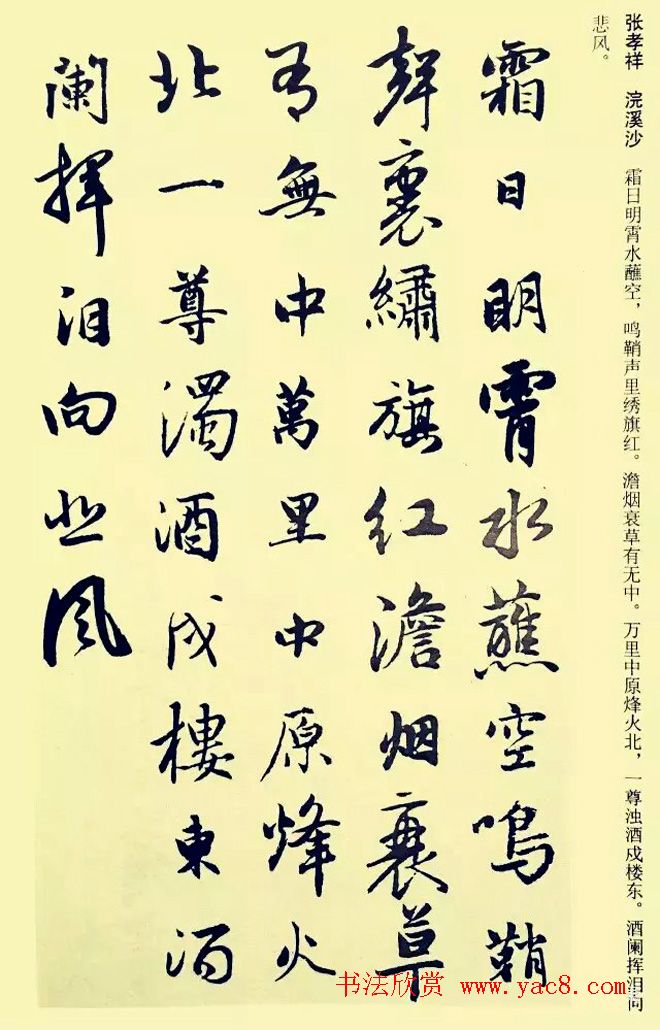 张孝祥 浣溪沙 霜日明霄水蘸空，鸣鞘声里绣旗红。澹烟衰草有无中。万里中原烽火北，一尊浊酒戍楼东。酒阑挥泪向
悲风。
霜日明霄水蘸空鳴鞘
聲裏繡旗紅澹烟衰草
有無中萬里中原烽火
北一尊濁酒戍樓東酒
闌揮泪向悲風
书法欣赏 www.yac8.com